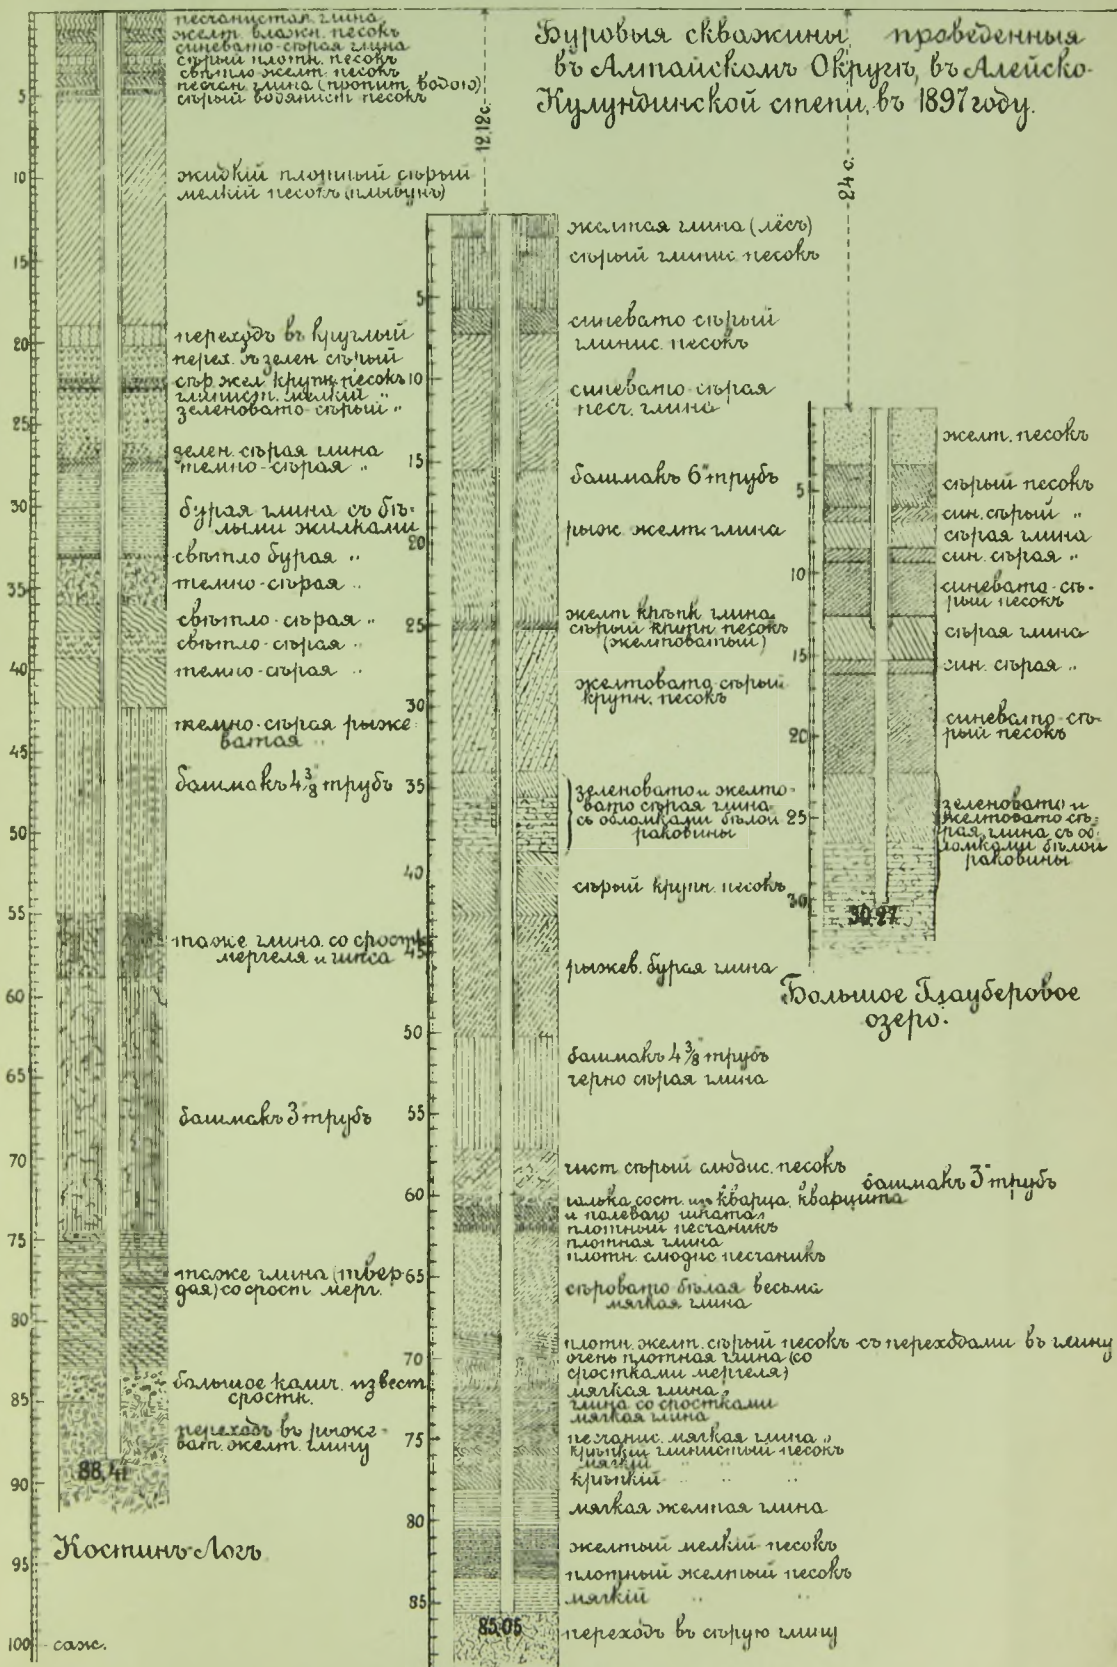 Буровыя скважины, проведенныя
въ Алтайскомъ Округѣ, въ Алейско-
Кулундинской степи, въ 1897 году.
песчанистая глина
желт. влажн. песокъ
синевато-сѣрая глина
сѣрый плотн. песокъ
свѣтло желт. песокъ
песчан. глина (пропит. водою)
сѣрый водянист. песокъ
жидкій плотный сѣрый
мелкій песокъ (плывунъ)
переходъ въ круглый
перех. въ зелен. сѣрый
сѣр. жел. крупн. песокъ
глинист. мелкій „
зеленовато-сѣрый „
зелен. сѣрая глина
темно-сѣрая „
бурая глина съ бѣ-
лыми жилками
свѣтло бурая „
темно-сѣрая „
свѣтло-сѣрая „
свѣтло-сѣрая „
темно-сѣрая „
темно-сѣрая рыже-
ватая „
башмакъ 4 3/8 трубъ
таже глина со сростк.
мергеля и гипса
башмакъ 3 трубъ
таже глина (твер-
дая) со срост. мерг.
большое колич. извест.
сростк.
переходъ въ рыже-
ват. желт. глину
88,41
Костинъ-Логъ
5
10
15
20
25
30
35
40
45
50
55
60
65
70
75
80
85
90
95
100 саж.
12.12 с.
желтая глина (лёсъ)
сѣрый глинис. песокъ
синевато сѣрый
глинис. песокъ
синевато сѣрая
песч. глина
башмакъ 6" трубъ
рыж. желт. глина
желт. крѣпк. глина
сѣрый крупн. песокъ
(желтоватый)
желтовато-сѣрый
крупн. песокъ
зеленовато и желто-
вато сѣрая глина
съ обломками бѣлой
раковины
сѣрый крупн. песокъ
рыжев. бурая глина
башмакъ 4 3/8" трубъ
черно сѣрая глина
чист. сѣрый слюдис. песокъ
башмакъ 3" трубъ
галька сост. из кварца, кварцита
и полеваго шпата,
плотный песчаникъ
плотная глина
плотн. слюдис. песчаникъ
сѣровато бѣлая весьма
мягкая глина
плотн. желт. сѣрый песокъ съ переходами въ глину
очень плотная глина (со
сростками мергеля)
мягкая глина
глина со сростками
мягкая глина
песчанис. мягкая глина „
крѣпкій глинистый песокъ
мягкій „ „
крѣпкій „ „
мягкая желтая глина
желтый мелкій песокъ
плотный желтый песокъ
мягкій „ „
переходъ въ сѣрую глину
85,05
5
10
15
20
25
30
35
40
45
50
55
60
65
70
75
80
85
24 с.
желт. песокъ
сѣрый песокъ
син. сѣрый „
сѣрая глина
син. сѣрая „
синевато-сѣ-
рый песокъ
сѣрая глина
син. сѣрая „
синевато-сѣ-
рый песокъ
зеленовато и
желтовато сѣ-
рая глина съ об-
ломками бѣлой
раковины
5
10
15
20
25
30
30,27
Большое Глауберовое
озеро.